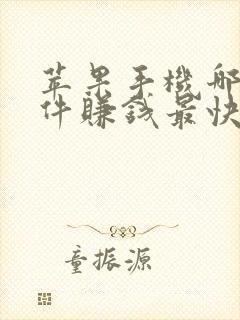 苹果手機哪
件賺錢最快
童振源